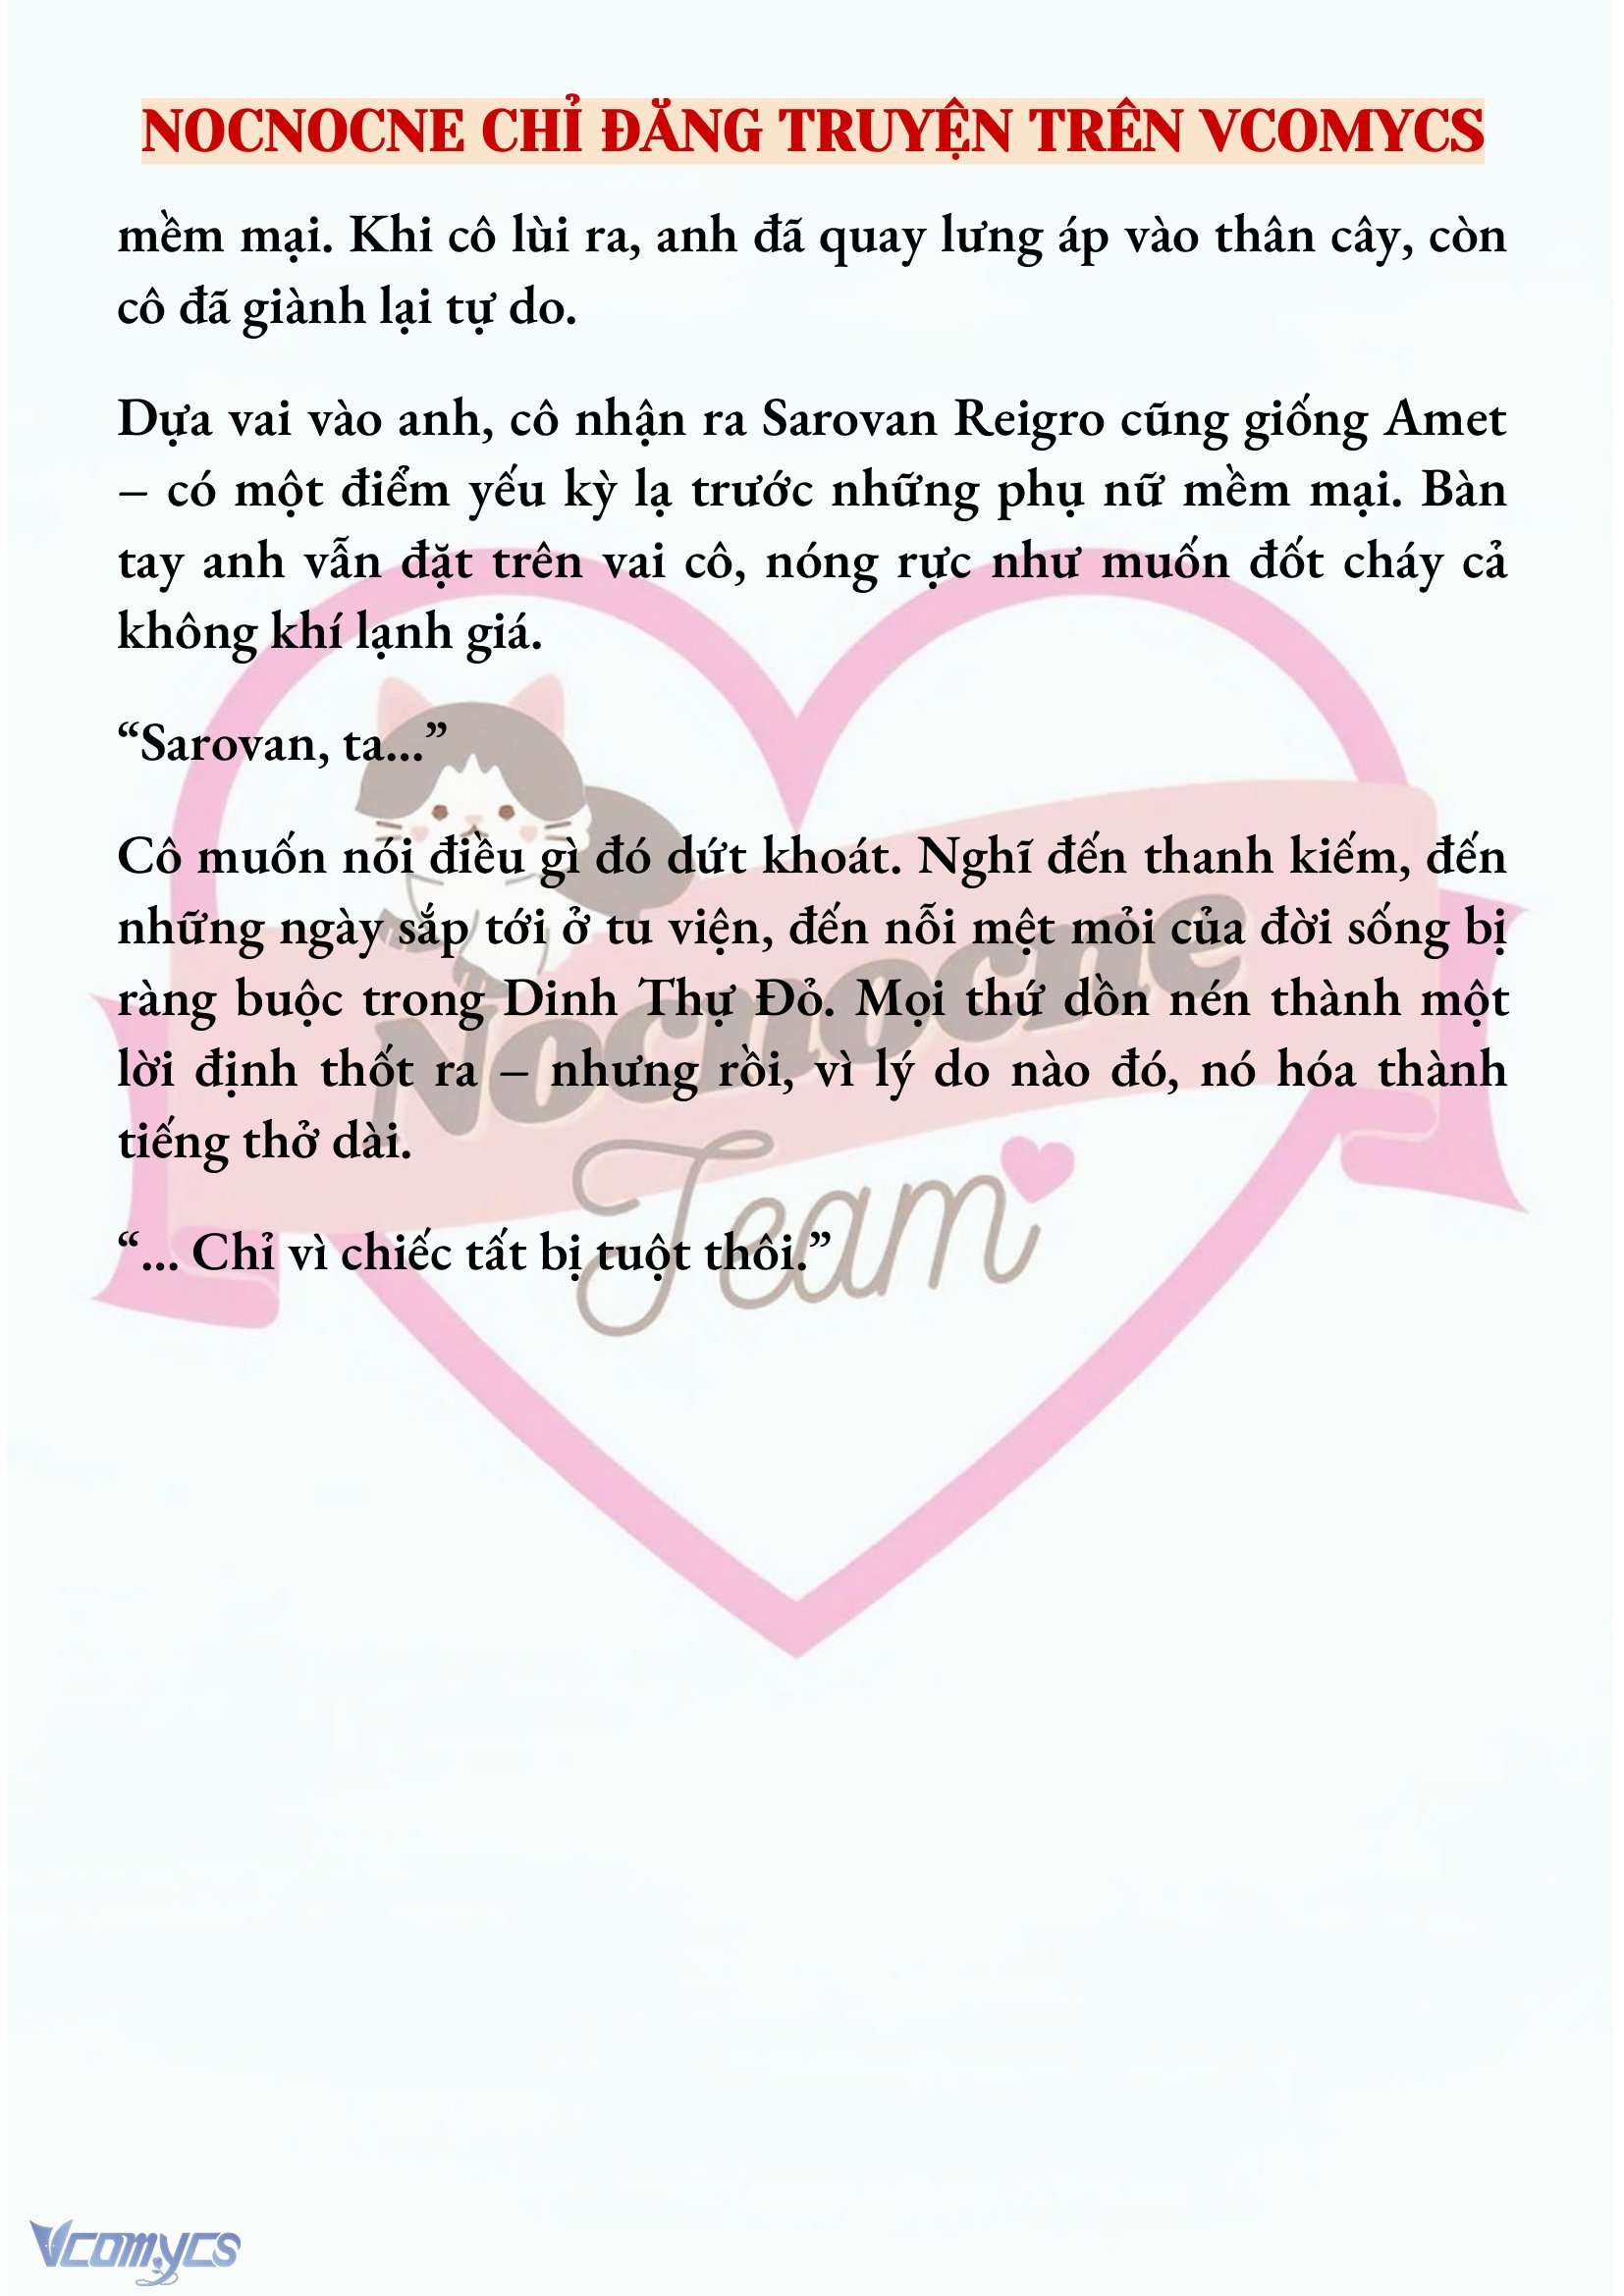 NOCNOCNE CHỈ ĐĂNG TRUYỆN TRÊN VCOMYCS
mềm mại. Khi cô lùi ra, anh đã quay lưng áp vào thân cây, còn
cô đã giành lại tự do.
Dựa vai vào anh, cô nhận ra Sarovan Reigro cũng giống Amet
– có một điểm yếu kỳ lạ trước những phụ nữ mềm mại. Bàn
tay anh vẫn đặt trên vai cô, nóng rực như muốn đốt cháy cả
không khí lạnh giá.
“Sarovan, ta...”
Cô muốn nói điều gì đó dứt khoát. Nghĩ đến thanh kiếm, đến
những ngày sắp tới ở tu viện, đến nỗi mệt mỏi của đời sống bị
ràng buộc trong Dinh Thự Đỏ. Mọi thứ dồn nén thành một
lời định thốt ra – nhưng rồi, vì lý do nào đó, nó hóa thành
tiếng thở dài.
“... Chỉ vì chiếc tất bị tuột thôi.”
Nocnocne
Team
Vcomycs